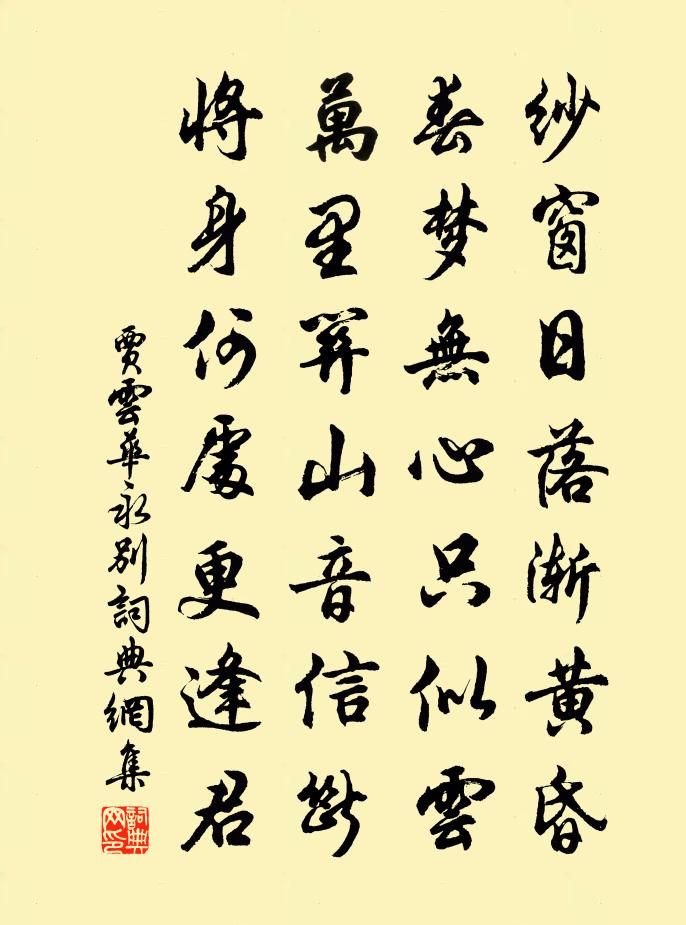 紗窗日落漸黃昏
春梦無心只似雲
萬里関山音信斷
將身何處更逢君
賈雲華永別詞典網集
詞典網印